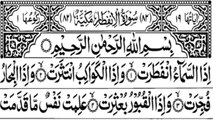 اٰيَاتُهَا ١٩ (٨٢) سُوْرَةُ الْاِنْفِطَارِ مَكِّيَّةٌ (٨٢) رُكُوْعُهَا ١
بِسْمِ اللهِ الرَّحْمٰنِ الرَّحِيْمِ
اِذَا السَّمَآءُ انْفَطَرَتْ ۙ۝١ وَاِذَا الْكَوَاكِبُ انْتَثَرَتْ ۙ۝٢ وَاِذَا الْبِحَارُ
فُجِّرَتْ ۙ۝٣ وَاِذَا الْقُبُوْرُ بُعْثِرَتْ ۙ۝٤ عَلِمَتْ نَفْسٌ مَّا قَدَّمَتْ